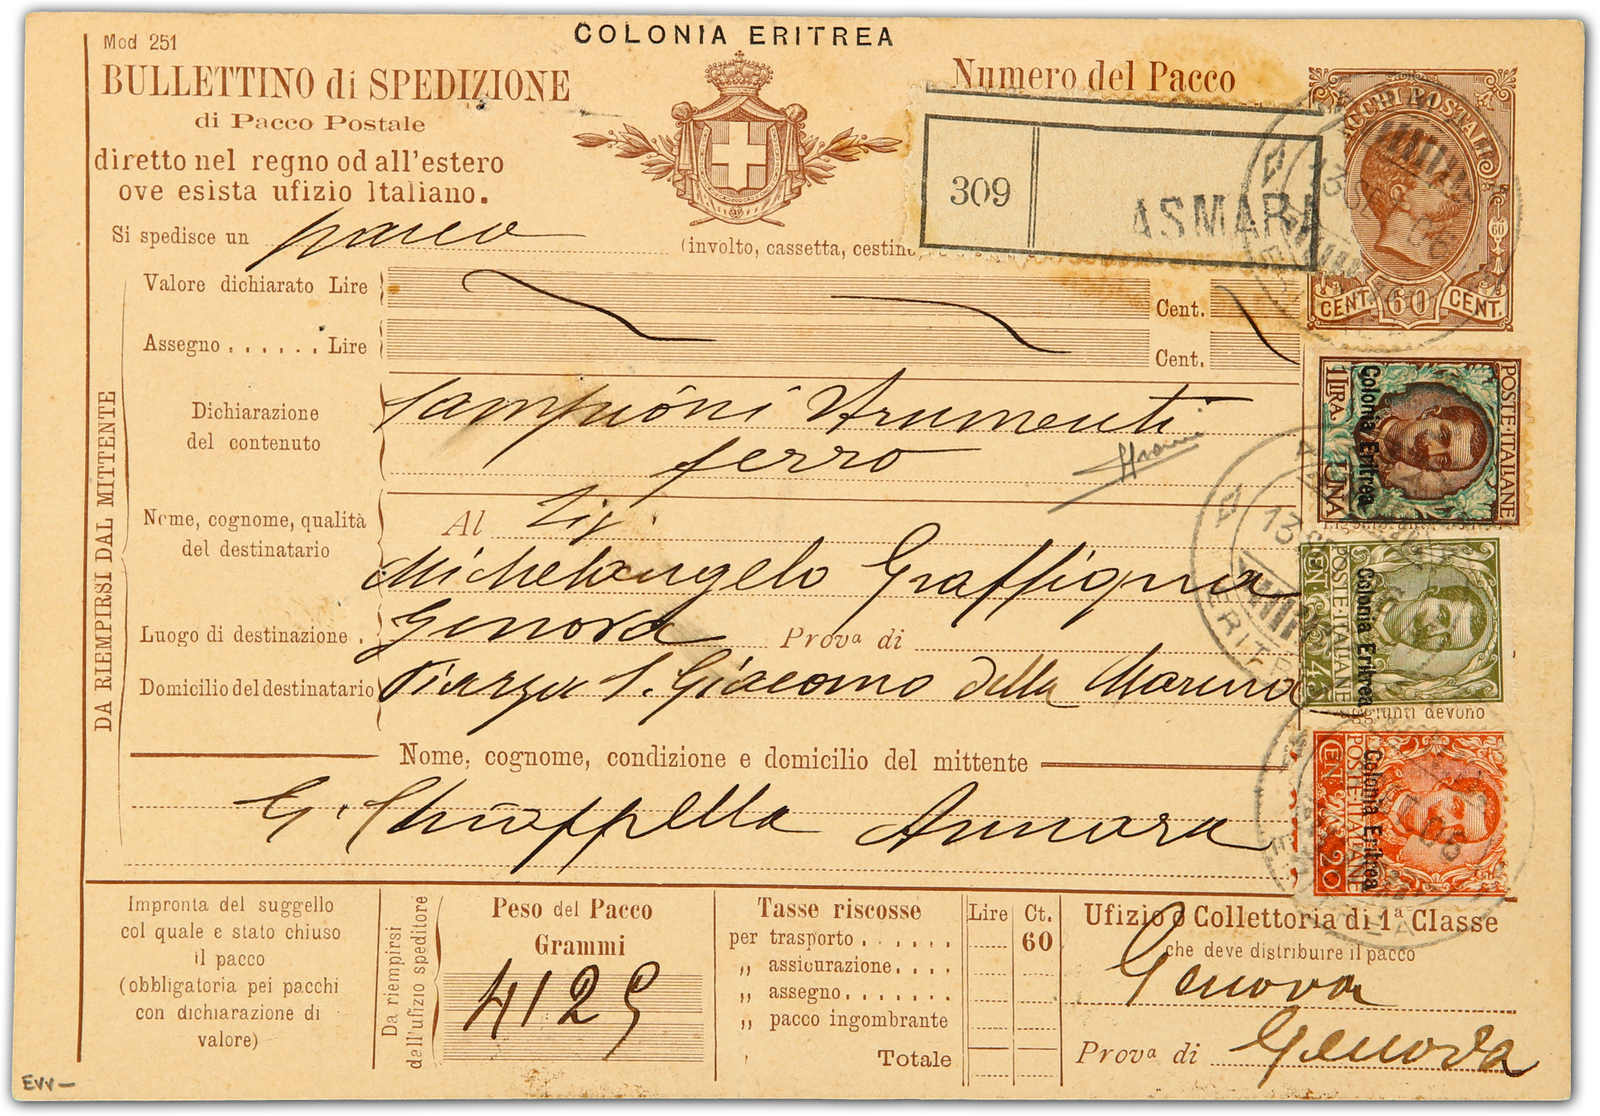 COLONIA ERITREA
Mod 251
BULLETTINO di SPEDIZIONE
di Pacco Postale
diretto nel regno od all'estero
ove esista ufizio Italiano.
Numero del Pacco
309
ASMARA
PACCHI POSTALI
60
CENT. 60 CENT.
Si spedisce un pacco (involto, cassetta, cestino
Valore dichiarato Lire Cent.
Assegno . . . . . . Lire Cent.
Dichiarazione
del contenuto
campioni strumenti
ferro
POSTE ITALIANE
1 LIRA UNA
Colonia Eritrea
Nome, cognome, qualità
del destinatario
Al Sig.
Michelangelo Graffigna
Luogo di destinazione . Genova Provª di
Domicilio del destinatario Piazza S. Giacomo della Marina
POSTE ITALIANE
CENT. 45
Colonia Eritrea
aggiunti devono
Nome, cognome, condizione e domicilio del mittente
G. Chiappella Asmara
POSTE ITALIANE
CENT. 20
Colonia Eritrea
13
06
ERITREA
DA RIEMPIRSI DAL MITTENTE
Impronta del suggello
col quale e stato chiuso
il pacco
(obbligatoria pei pacchi
con dichiarazione di
valore)
Da riempirsi
dall'ufizio speditore
Peso del Pacco
Grammi
4125
Tasse riscosse Lire Ct.
per trasporto . . . . . . 60
„ assicurazione. . . .
„ assegno. . . . . . .
„ pacco ingombrante
Totale
Ufizio o Collettoria di 1ª Classe
che deve distribuire il pacco
Genova
Provª di Genova
EVV–